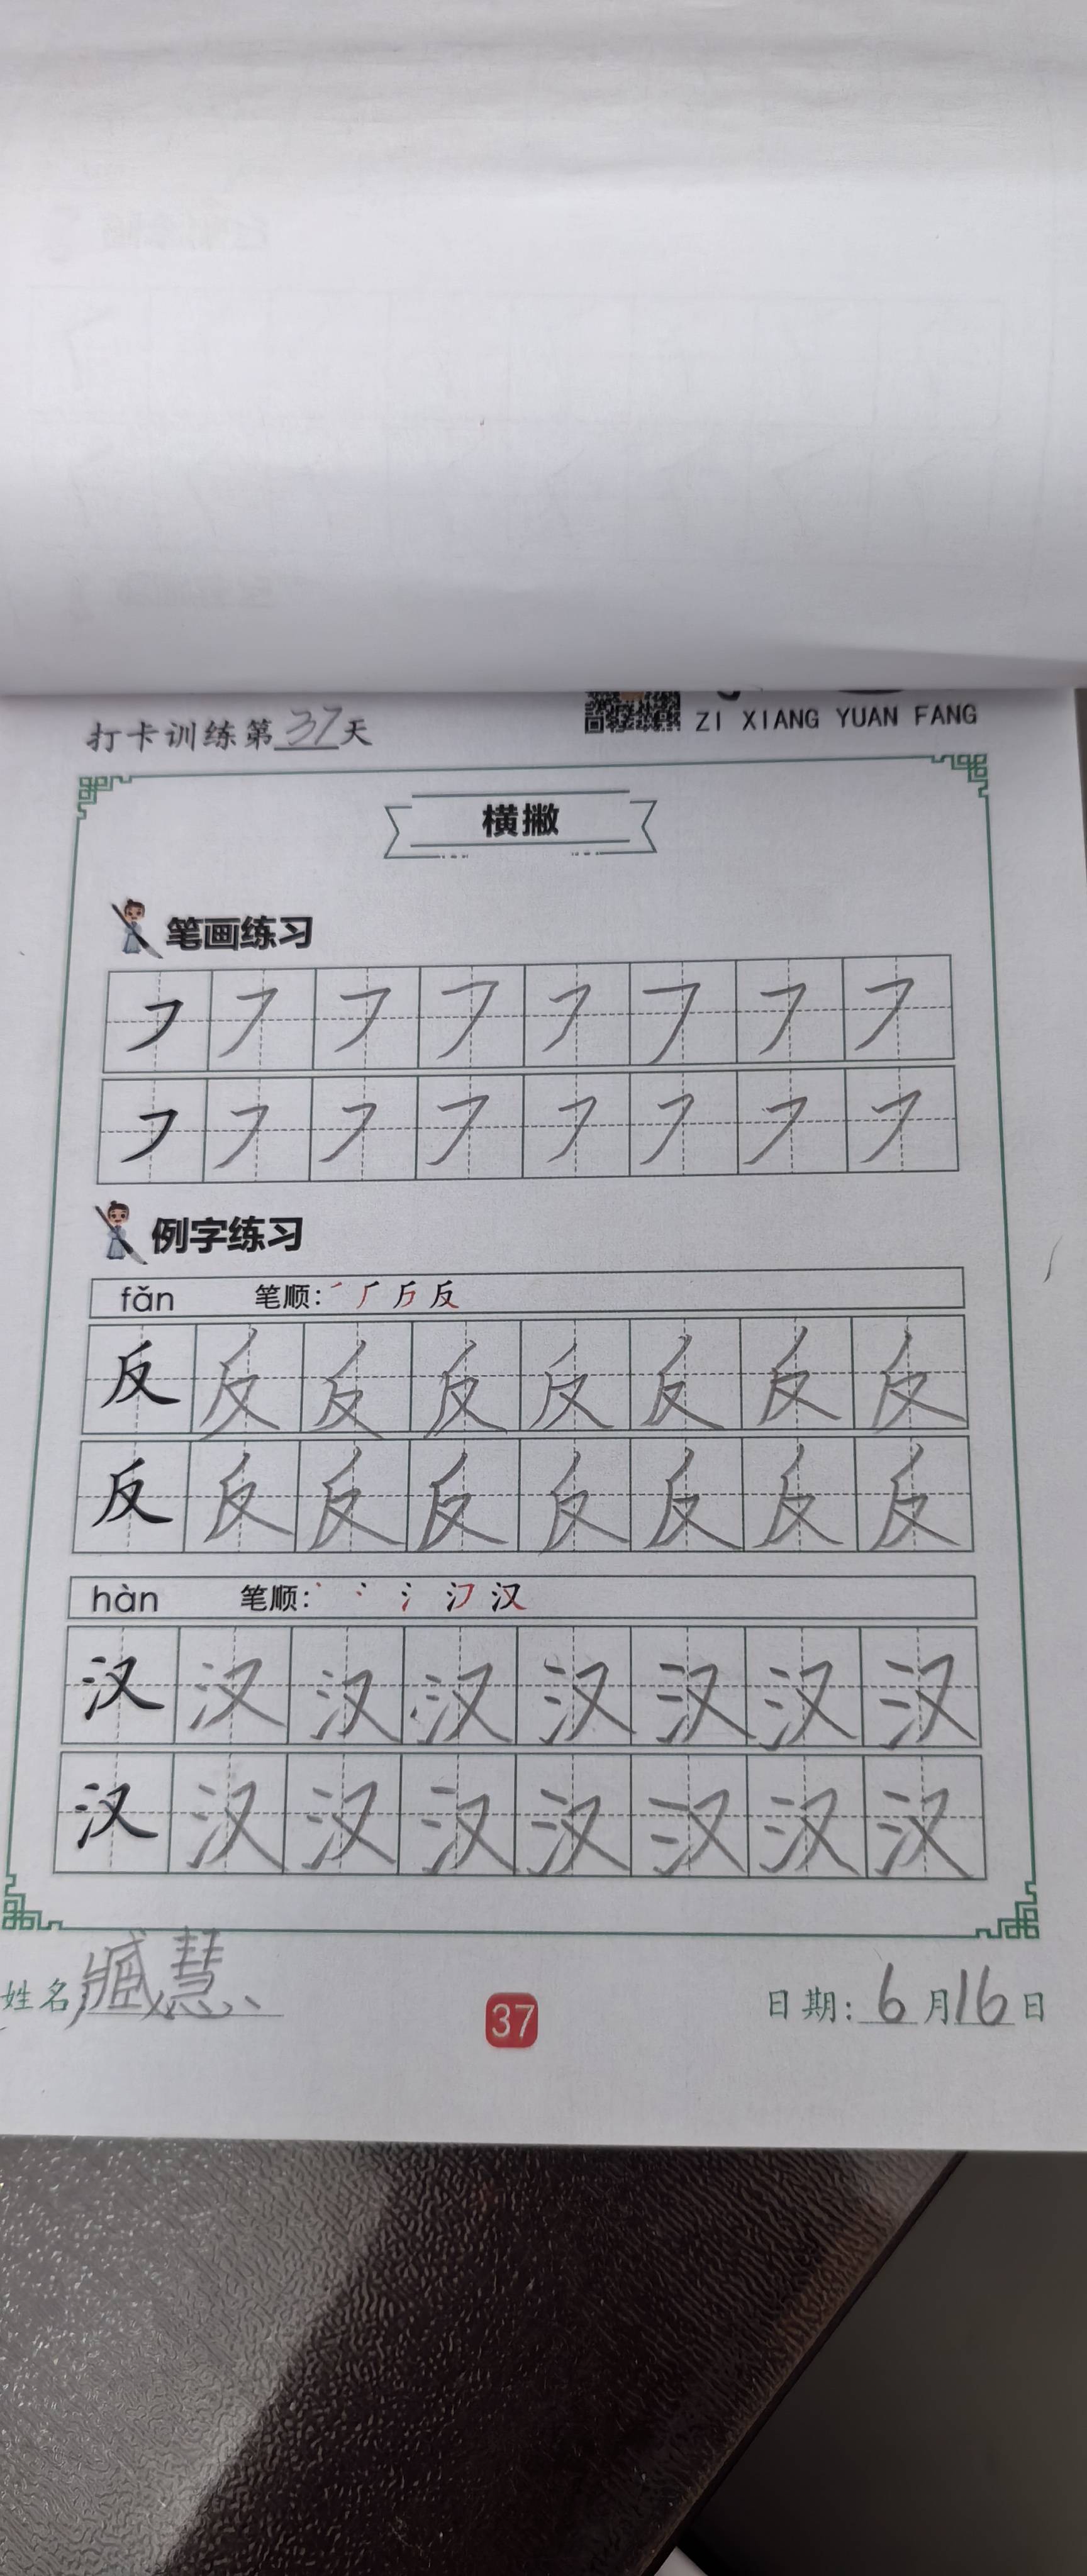 打卡训练第37天
ZI XIANG YUAN FANG
横撇
笔画练习
㇇ ㇇ ㇇ ㇇ ㇇ ㇇ ㇇ ㇇
㇇ ㇇ ㇇ ㇇ ㇇ ㇇ ㇇ ㇇
例字练习
fǎn 笔顺: ㇒ 厂 反
反 反 反 反 反 反 反 反
反 反 反 反 反 反 反 反
hàn 笔顺: 丶 冫 氵 汉
汉 汉 汉 汉 汉 汉 汉 汉
汉 汉 汉 汉 汉 汉 汉 汉
姓名 臧慧
37
日期: 6月16日